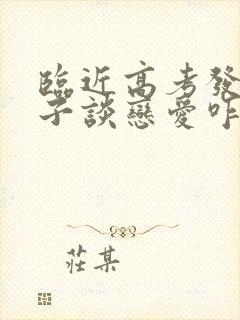 臨近高考發
子談戀愛咋
莊某